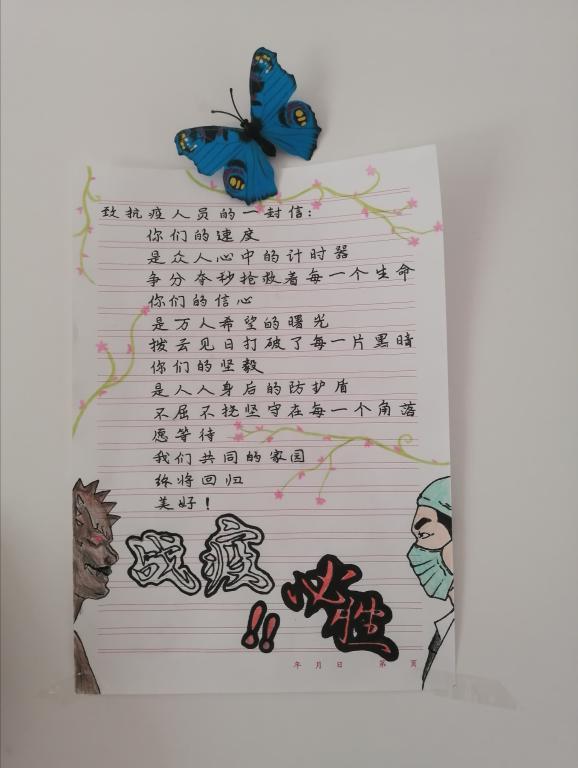 致抗疫人员的一封信:
你们的速度
是众人心中的计时器
争分夺秒抢救着每一个生命
你们的信心
是万人希望的曙光
拨云见日打破了每一片黑暗
你们的坚毅
是人人身后的防护盾
不屈不挠坚守在每一个角落
愿等待
我们共同的家园
终将回归
美好!
战疫
必胜
!!
年 月 日 第 页